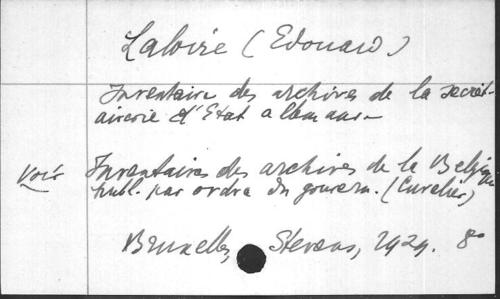 Laloire (Edouard)
Inventaire des archives de la secrét-
airerie d'Etat allemande
Voir Inventaires des archives de la Belgique
publ. par ordre du gouvern. (Cuvelier)
Bruxelles, Stevens, 1929. 8°